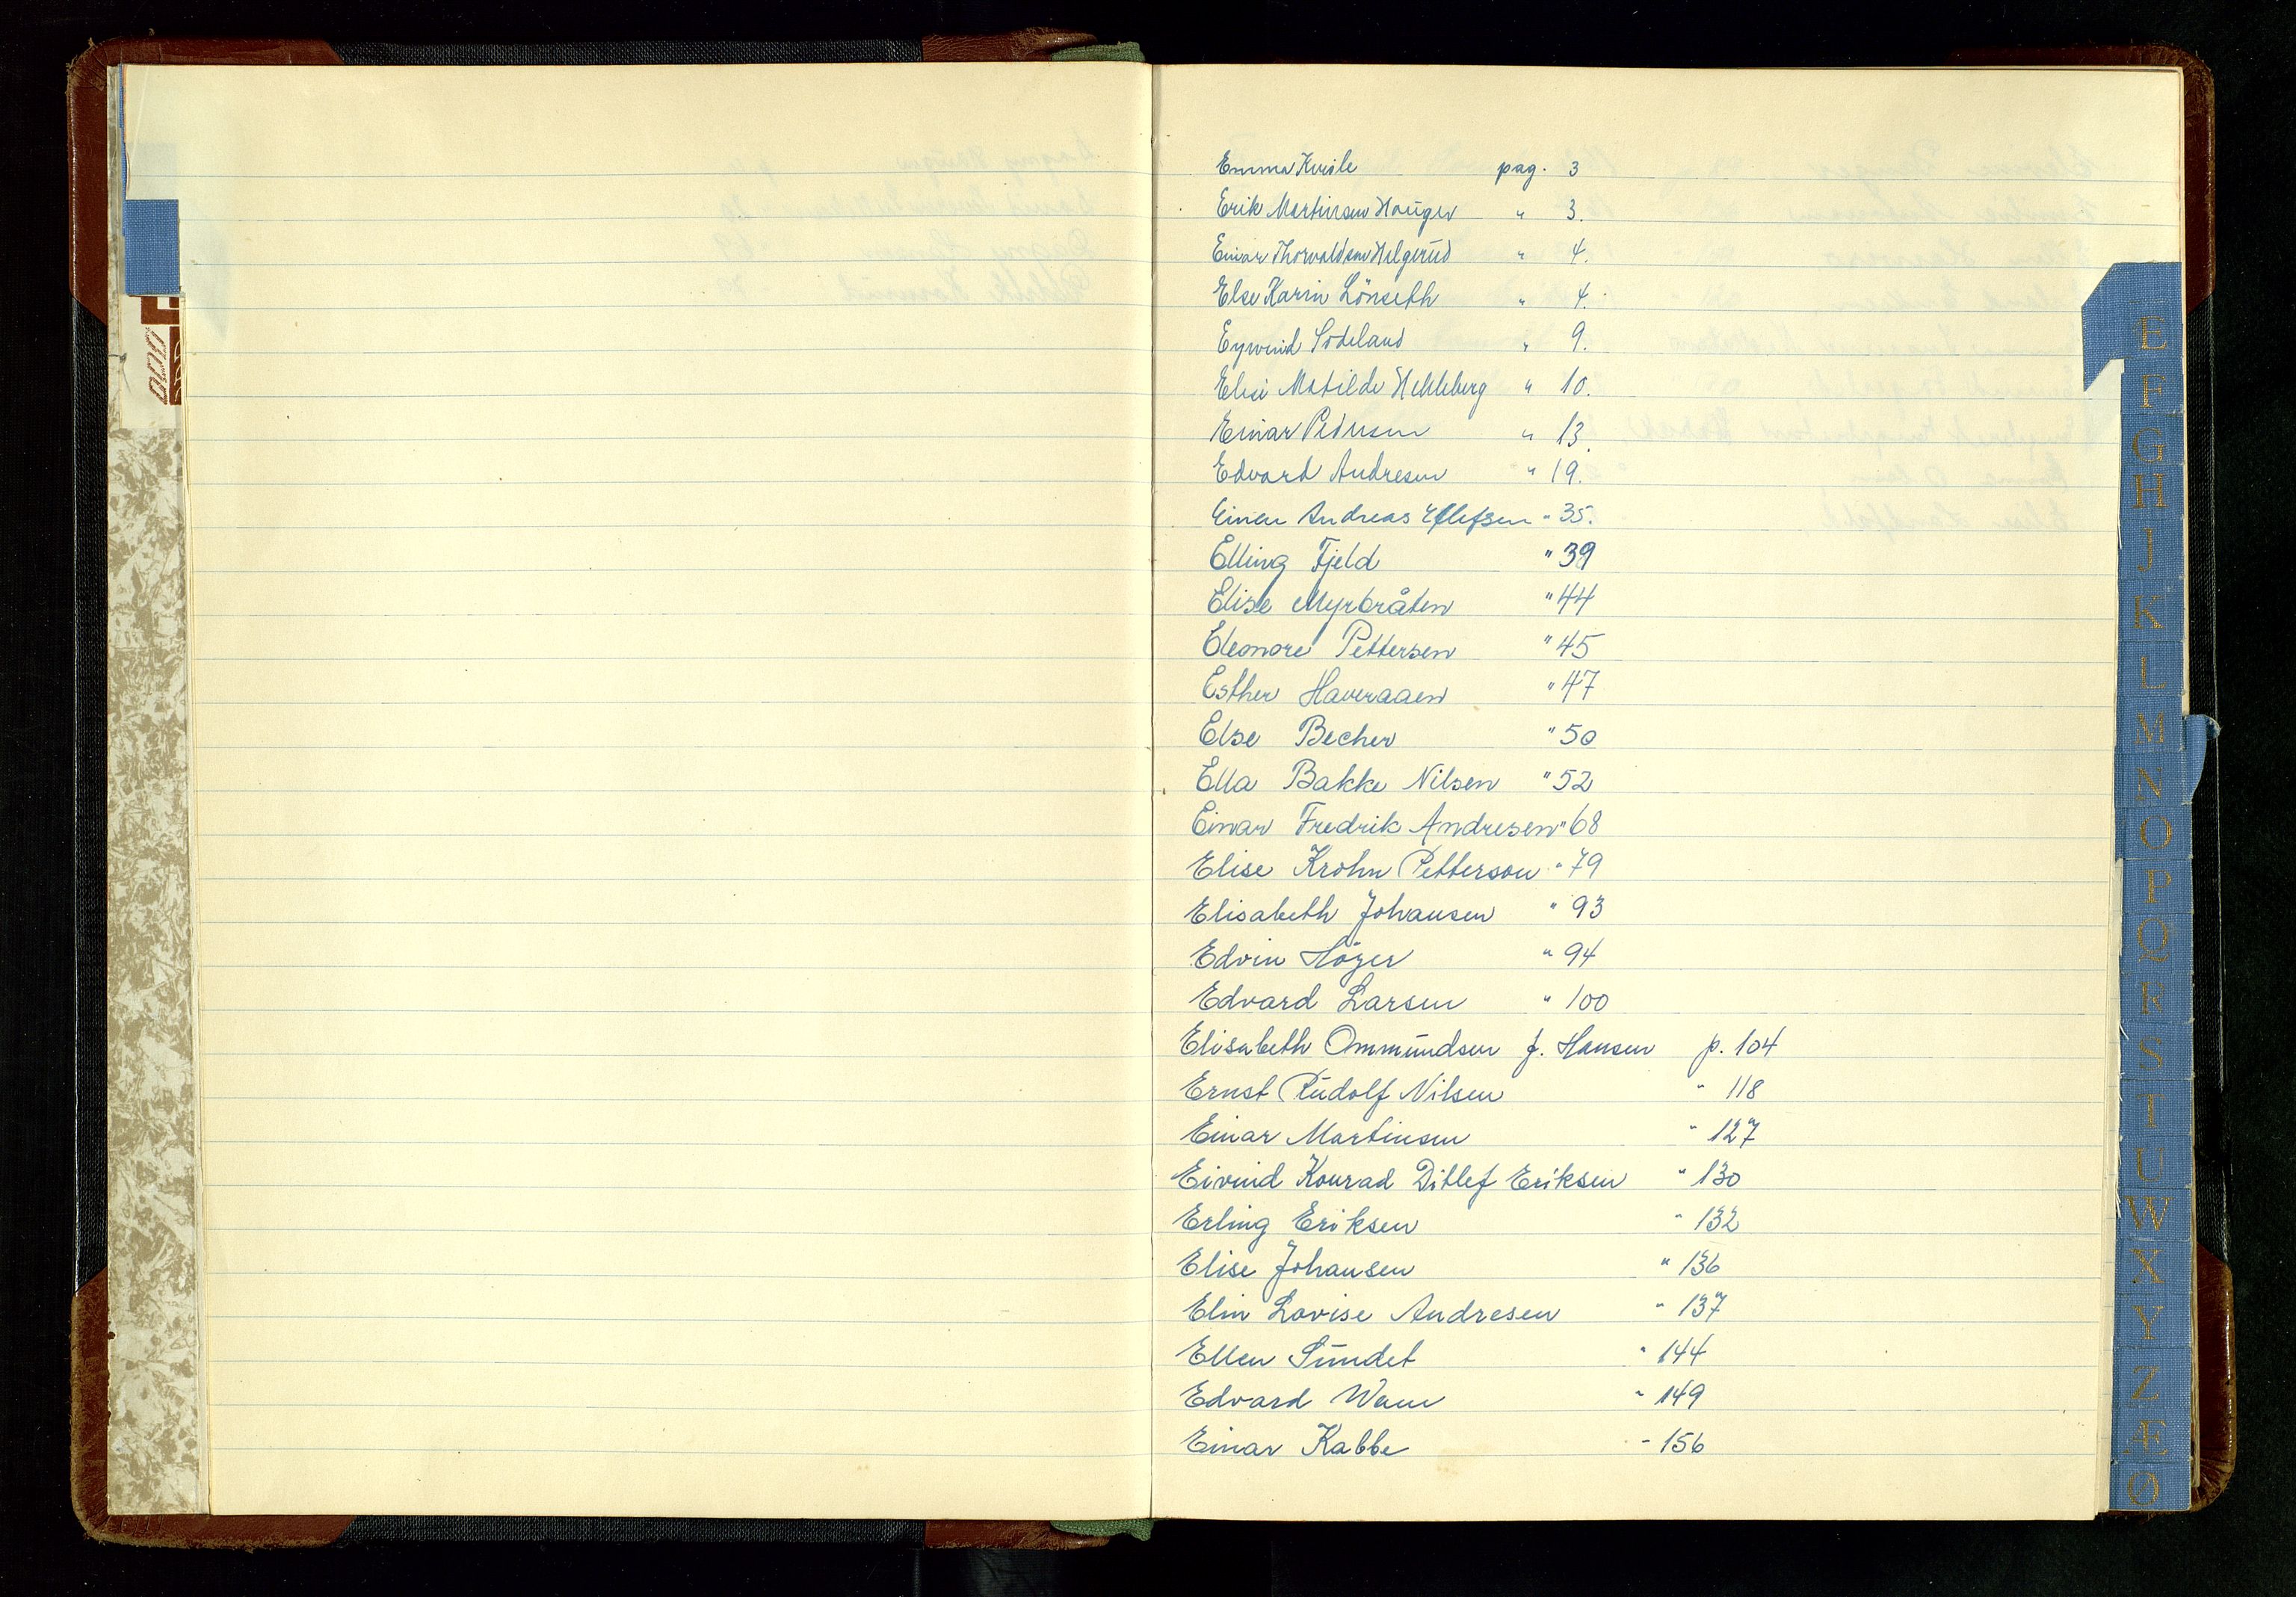 Emma Kvisle pag. 3
Erik Martinsen Hauger " 3.
Einar Thorvaldsen Helgerud " 4.
Else Karin Lönseth " 4.
Eyvind Södeland " 9.
Elise Matilde Hekleberg " 10.
Einar Pedersen " 13.
Edvard Andresen " 19.
Einar Andreas Ellefsen " 35.
Elling Fjeld " 39
Elise Myrbråten " 44
Eleonore Pettersen " 45
Esther Haveraaen " 47
Else Becher " 50
Ella Bakke Nilsen " 52
Einar Fredrik Andresen " 68
Elise Krohn Petterson " 79
Elisabeth Johansen " 93
Edvin Höyer " 94
Edvard Larsen " 100
Elisabeth Ommundsen f. Hansen p. 104
Ernst Rudolf Nilsen " 118
Einar Martinsen " 127
Eivind Konrad Ditlef Eriksen " 130
Erling Eriksen " 132
Elise Johansen " 136
Elin Lovise Andresen " 137
Ellen Sundet " 144
Edvard Wam " 149
Einar Kabbe - 156
E
F
G
H
J
K
L
M
N
O
P
Q
R
S
T
U
W
X
Y
Z
Æ
Ø